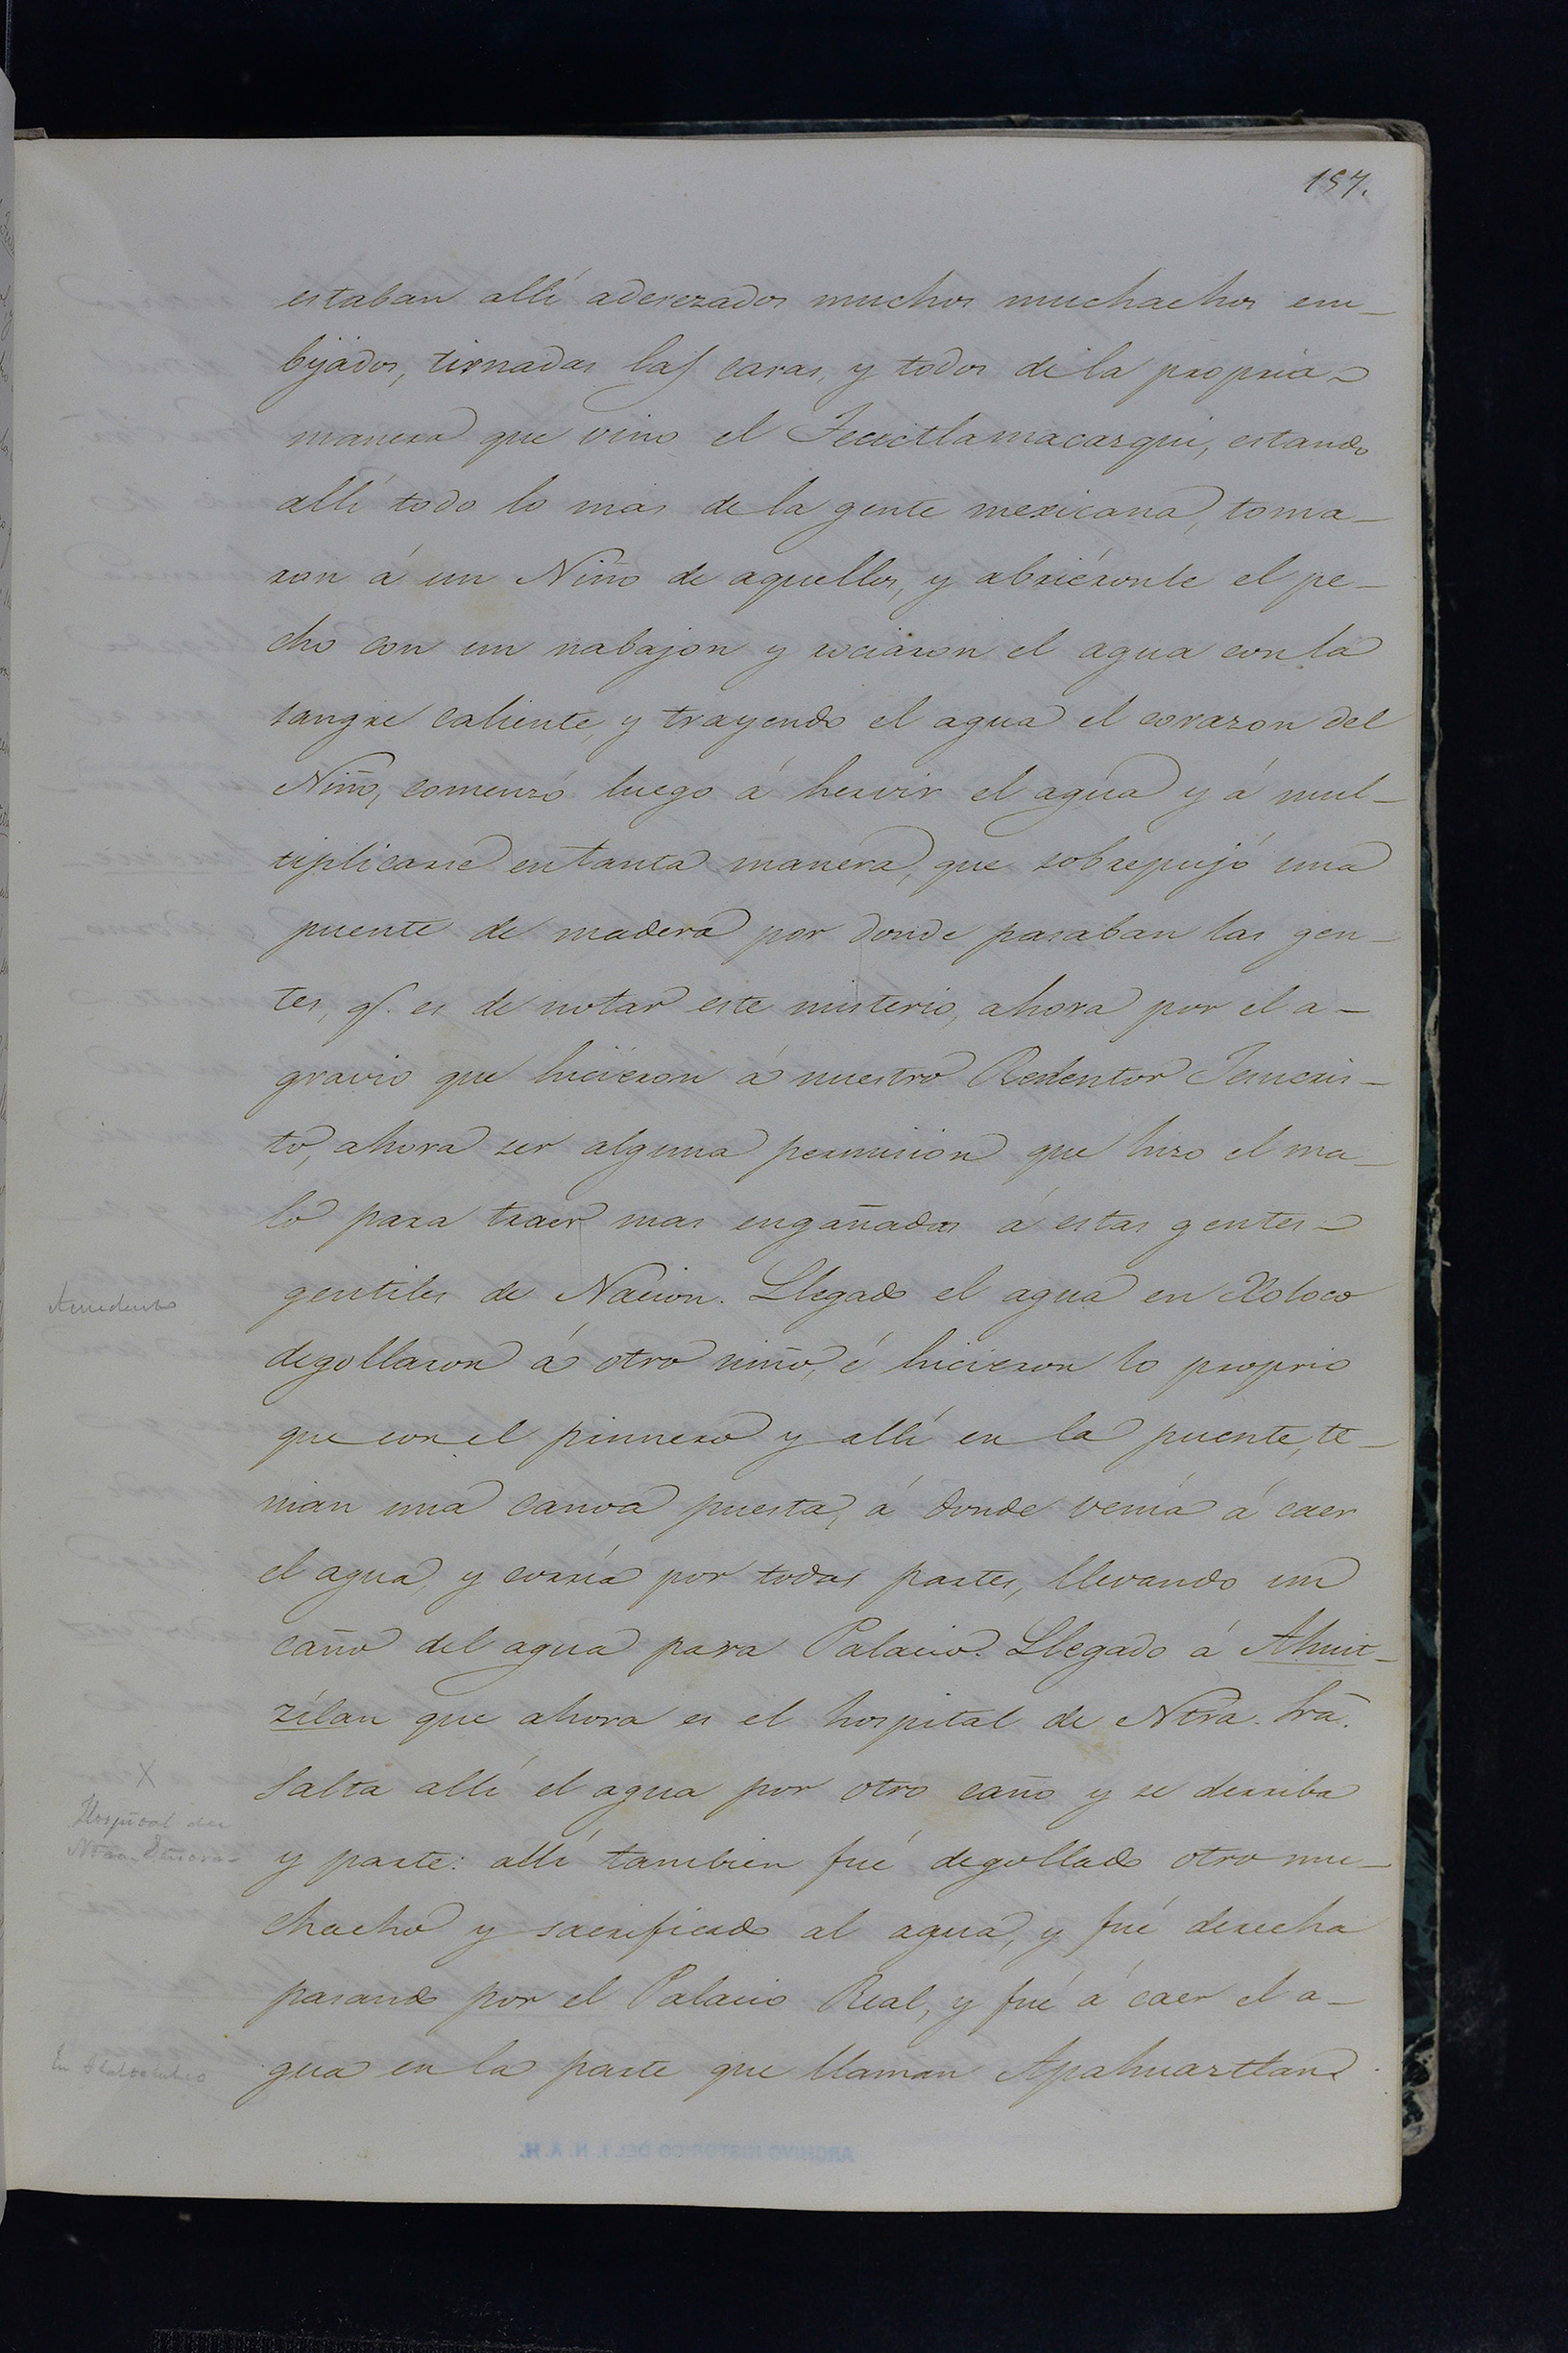 157.
estaban allí aderezados muchos muchachos em-
bijados, tiznadas las caras, y todos de la propria
manera que vino el Tecuctlamacazqui, estando
allí todo lo mas de la gente mexicana, toma-
ron á un Niño de aquellos, y abriéronle el pe-
cho con un nabajon y rociaron el agua con la
sangre caliente, y trayendo el agua el corazon del
Niño, comenzó luego á hervir el agua y á mul-
tiplicarse en tanta manera, que sobrepujó una
puente de madera por donde pasaban las gen-
tes, q. es de notar este misterio, ahora por el a-
gravio que hicieron á nuestro Redentor Jesucris-
to, ahora ser alguna permision que hizo el ma-
lo para traer mas engañados á estas gentes
gentiles de Nacion. Llegado el agua en Xoloco
degollaron á otro niño, é hicieron lo proprio
que con el primero y allí en la puente, te-
nian una canoa puesta, á donde venía á caer
el agua, y corría por todas partes, llevando un
caño del agua para Palacio. Llegado á Ahuit-
zílan que ahora es el hospital de Ntra. Srã.
Salta allí el agua por otro caño y se derriba
y parte: allí tambien fué degollado otro mu-
chacho y sacrificado al agua, y fué derecha
pasando por el Palacio Real, y fué á caer el a-
gua en la parte que llaman Apahuaztlan
X
Hospital de
Ntra. Señora
En Tlaltelulco
ARCHIVO HISTORICO DEL I. N. A. H.